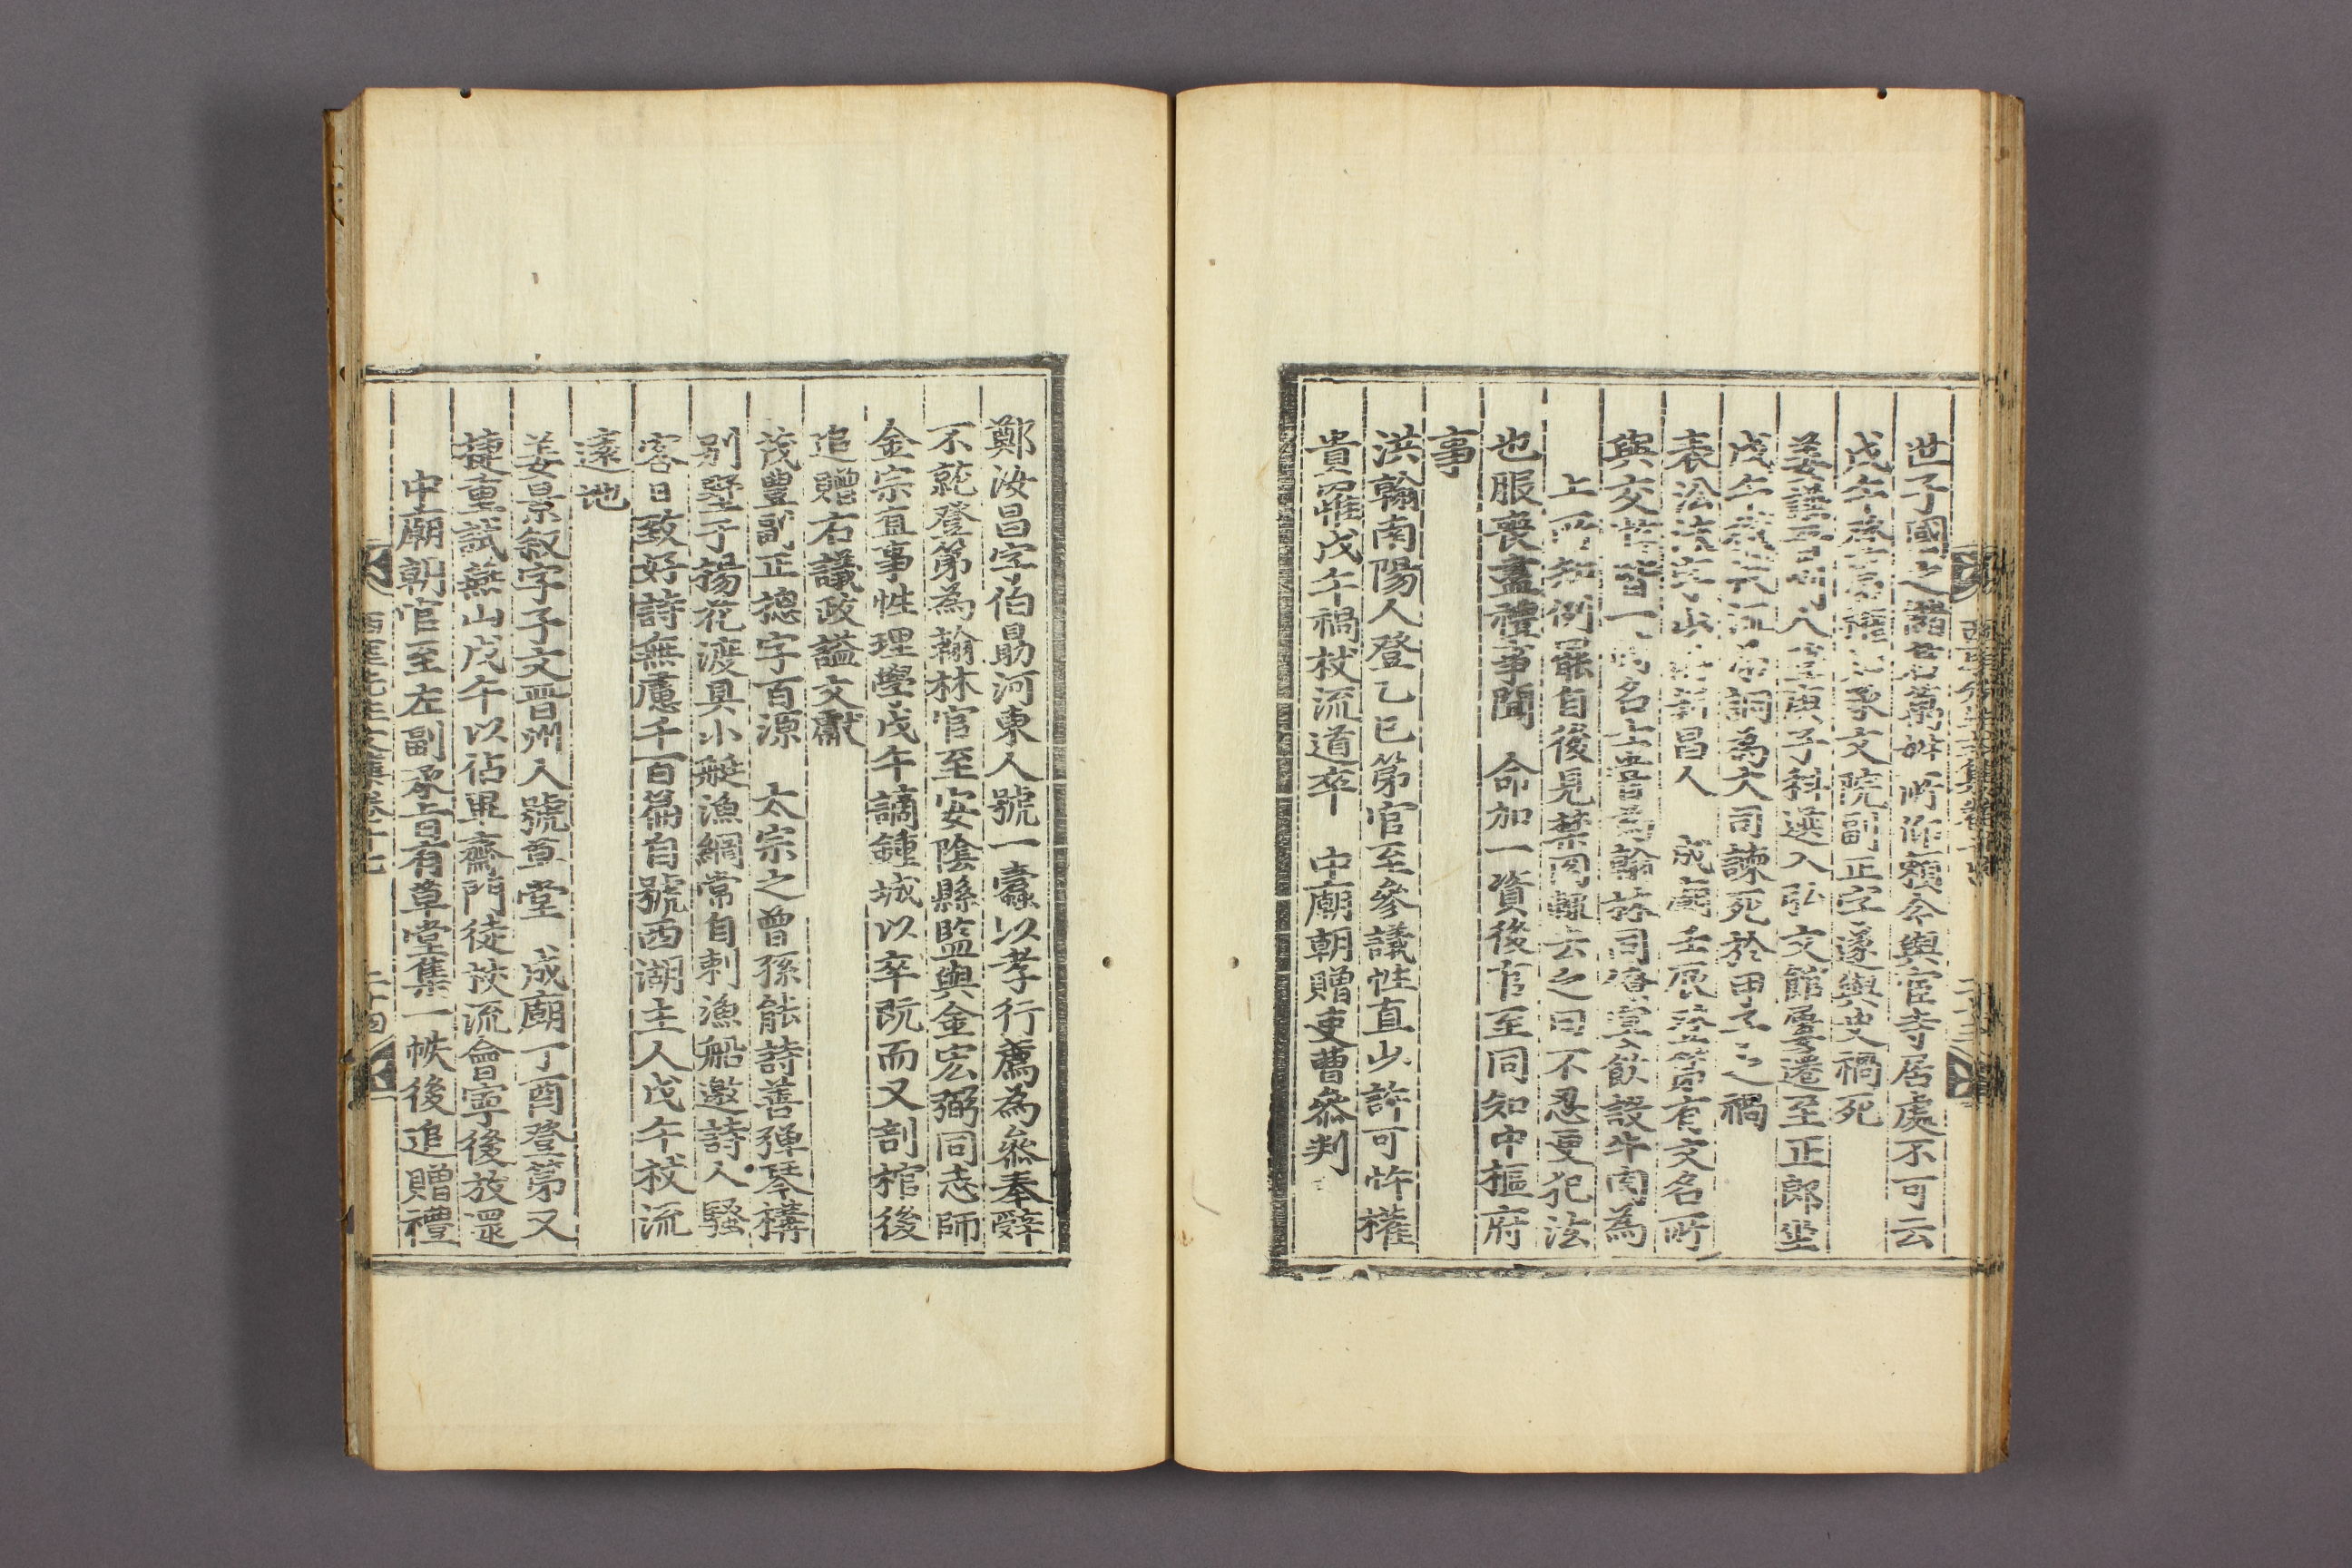 世子國之諸君萬姓所仰賴今與宦寺居處不可云
戊午承文院副正字遂與史禍死
姜謙人登庚子科選入弘文館屢遷至正郎坐
戊午詞為大司諫死於甲子之禍
表沿沫字昌人 成廟壬辰登第有文名所
與交皆一時名士嘗為翰林同僚宴飲設牛肉為
上所知例罷自後見禁肉輒去之曰不忍更犯法
也服喪盡禮事聞 命加一資後官至同知中樞府
事
洪瀚南陽人登乙巳第官至參議性直少許可忤權
貴罹戊午禍杖流道卒 中廟朝贈吏曹參判
鄭汝昌字伯勗河東人號一蠹以孝行薦為參奉辭
不就登第為翰林官至安陰縣監與金宏弼同志師
金宗直事性理學戊午謫鍾城以卒既而又剖棺後
追贈右議政謚文獻
茂豐副正摠字百源 太宗之曾孫能詩善彈琴搆
別墅于楊花渡具小艇漁網常自刺漁船邀詩人騷
客日致好詩無慮千百篇自號西湖主人戊午杖流
遠地
姜景叙字子文晋州人號草堂 成廟丁酉登第又
捷重試燕山戊午以佔畢齋門徒杖流會寧後放還
中廟朝官至左副承旨有草堂集一帙後追贈禮
西厓先生文集卷十七 二十四